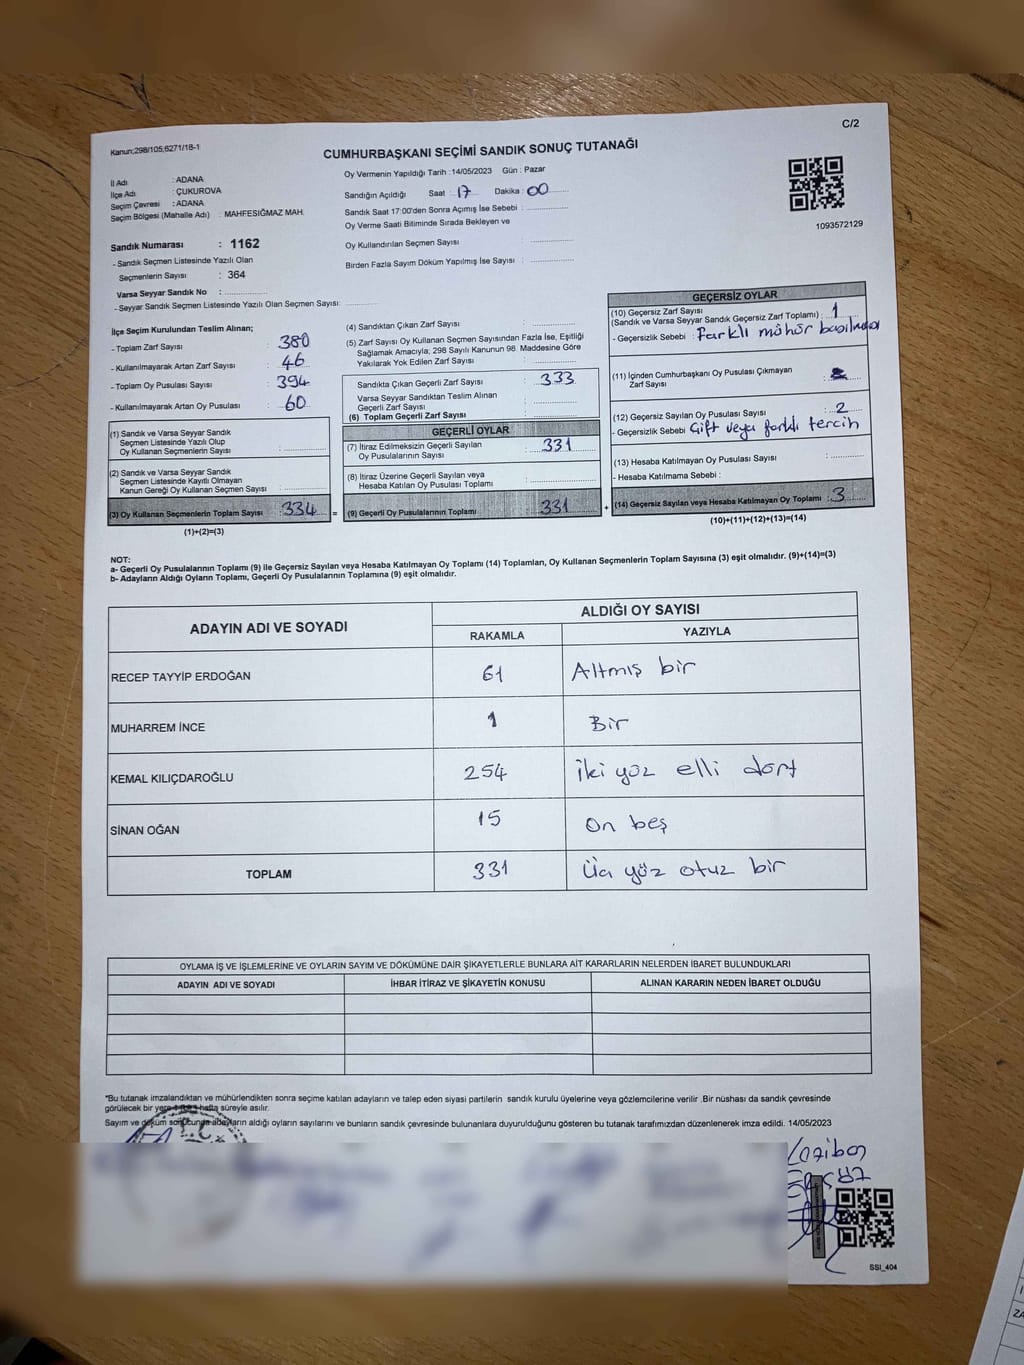 C/2
Kanun;298/105,6271/18-1
CUMHURBAŞKANI SEÇİMİ SANDIK SONUÇ TUTANAĞI
İl Adı : ADANA
İlçe Adı : ÇUKUROVA
Seçim Çevresi : ADANA
Seçim Bölgesi (Mahalle Adı) : MAHFESIĞMAZ MAH.
Sandık Numarası : 1162
- Sandık Seçmen Listesinde Yazılı Olan
Seçmenlerin Sayısı : 364
Varsa Seyyar Sandık No :
- Seyyar Sandık Seçmen Listesinde Yazılı Olan Seçmen Sayısı:
Oy Vermenin Yapıldığı Tarih :14/05/2023 Gün : Pazar
Sandığın Açıldığı Saat : 17 Dakika : 00
Sandık Saat 17:00'den Sonra Açımış İse Sebebi :
Oy Verme Saati Bitiminde Sırada Bekleyen ve
Oy Kullandırılan Seçmen Sayısı :
Birden Fazla Sayım Döküm Yapılmış İse Sayısı :
1093572129
İlçe Seçim Kurulundan Teslim Alınan;
- Toplam Zarf Sayısı : 380
- Kullanılmayarak Artan Zarf Sayısı : 46
- Toplam Oy Pusulası Sayısı : 394
- Kullanılmayarak Artan Oy Pusulası : 60
(1) Sandık ve Varsa Seyyar Sandık
Seçmen Listesinde Yazılı Olup
Oy Kullanan Seçmenlerin Sayısı :
(2) Sandık ve Varsa Seyyar Sandık
Seçmen Listesinde Kayıtlı Olmayan
Kanun Gereği Oy Kullanan Seçmen Sayısı :
(3) Oy Kullanan Seçmenlerin Toplam Sayısı : 334 =
(1)+(2)=(3)
(4) Sandıktan Çıkan Zarf Sayısı :
(5) Zarf Sayısı Oy Kullanan Seçmen Sayısından Fazla İse, Eşitliği
Sağlamak Amacıyla; 298 Sayılı Kanunun 98. Maddesine Göre
Yakılarak Yok Edilen Zarf Sayısı :
Sandıkta Çıkan Geçerli Zarf Sayısı : 333
Varsa Seyyar Sandıktan Teslim Alınan
Geçerli Zarf Sayısı :
(6) Toplam Geçerli Zarf Sayısı :
GEÇERLİ OYLAR
(7) İtiraz Edilmeksizin Geçerli Sayılan
Oy Pusulalarının Sayısı : 331
(8) İtiraz Üzerine Geçerli Sayılan veya
Hesaba Katılan Oy Pusulası Toplamı :
(9) Geçerli Oy Pusulalarının Toplamı : 331 +
GEÇERSİZ OYLAR
(10) Geçersiz Zarf Sayısı
(Sandık ve Varsa Seyyar Sandık Geçersiz Zarf Toplamı) : 1
- Geçersizlik Sebebi : farklı mühür basılması
(11) İçinden Cumhurbaşkanı Oy Pusulası Çıkmayan
Zarf Sayısı :
(12) Geçersiz Sayılan Oy Pusulası Sayısı : 2
- Geçersizlik Sebebi Çift veya farklı tercih
(13) Hesaba Katılmayan Oy Pusulası Sayısı :
- Hesaba Katılmama Sebebi :
(14) Geçersiz Sayılan veya Hesaba Katılmayan Oy Toplamı : 3
(10)+(11)+(12)+(13)=(14)
NOT:
a- Geçerli Oy Pusulalarının Toplamı (9) ile Geçersiz Sayılan veya Hesaba Katılmayan Oy Toplamı (14) Toplamları, Oy Kullanan Seçmenlerin Toplam Sayısına (3) eşit olmalıdır. (9)+(14)=(3)
b- Adayların Aldığı Oyların Toplamı, Geçerli Oy Pusulalarının Toplamına (9) eşit olmalıdır.
ADAYIN ADI VE SOYADI
ALDIĞI OY SAYISI
RAKAMLA YAZIYLA
RECEP TAYYİP ERDOĞAN 61 Altmış bir
MUHARREM İNCE 1 Bir
KEMAL KILIÇDAROĞLU 254 İki yüz elli dört
SİNAN OĞAN 15 On beş
TOPLAM 331 Üç yüz otuz bir
OYLAMA İŞ VE İŞLEMLERİNE VE OYLARIN SAYIM VE DÖKÜMÜNE DAİR ŞİKAYETLERLE BUNLARA AİT KARARLARIN NELERDEN İBARET BULUNDUKLARI
ADAYIN ADI VE SOYADI İHBAR İTİRAZ VE ŞİKAYETİN KONUSU ALINAN KARARIN NEDEN İBARET OLDUĞU
*Bu tutanak imzalandıktan ve mühürlendikten sonra seçime katılan adayların ve talep eden siyasi partilerin sandık kurulu üyelerine veya gözlemcilerine verilir .Bir nüshası da sandık çevresinde
görülecek bir yere 1 hafta süreyle asılır.
Sayım ve döküm sonucunda adayların aldığı oyların sayılarını ve bunların sandık çevresinde bulunanlara duyurulduğunu gösteren bu tutanak tarafımızdan düzenlenerek imza edildi. 14/05/2023
T.C.
SSI_404